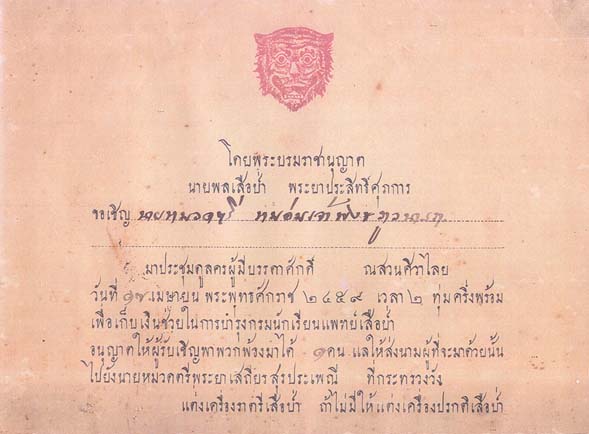 โดยพระบรมราชานุญาต
นายพลเสือป่า พระยาประสิทธิ์ศุภการ
ขอเชิญ นายหมวดตรี หม่อมเจ้า
มาประชุมดูลครผู้มีบรรดาศักดิ์ ณสวนศิวาไลย
วันที่ ๑๗ เมษายน พระพุทธศักราช ๒๔๕๙ เวลา ๒ ทุ่มครึ่งพร้อม
เพื่อเก็บเงินช่วยในการบำรุงกรมนักเรียนแพทย์เสือป่า
อนุญาตให้ผู้รับเชิญพาพวกพ้องมาได้ ๑ คน แลให้ส่งนามผู้ที่จะมาด้วยนั้น
ไปยังนายหมวดตรีพระยาเสถียรสุรประเพณี ที่กระทรวงวัง
แต่งเครื่องราตรีเสือป่า ถ้าไม่มีให้แต่งเครื่องปรกติเสือป่า